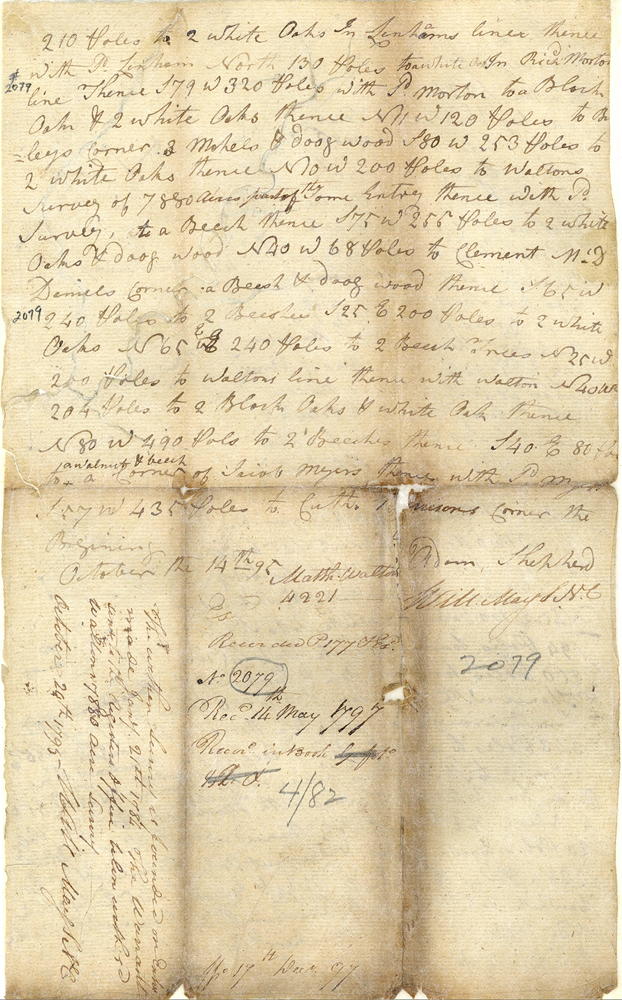 210 Poles to 2 white Oaks In Linhams line thence
with Sd. Linham North 130 Poles to a white Oak In Richd. Morton
# 2079
line Thence S79 W 320 Poles with Sd. Morton to a Black
Oak & 2 white Oaks thence N1 W 120 Poles to
leys Corner 3 & doog wood S80 W 253 Poles to
2 white Oaks thence N10 W 200 Poles to Waltons
Survey of 7880 Acres part of the Some Entry thence with Sd.
Survey, to a Beech thence S75 W 255 Poles to 2 white
Oaks & doog wood N40 W 68 Poles to Clement McD
Daniels Corner a Beech & doog wood thence S65 W
2079
240 Poles to 2 Beeches S25 E 200 Poles to 2 white
Oaks N65 E 240 Poles to 2 Beech Trees N25 W
200 Poles to Waltons line thence with Walton N40 W
204 Poles to 2 Black Oaks & white Oak thence
N80 W 490 Pols to 2 Beeches thence S40 E 80
a walnut & beech
to a Corner of Jacob Myers thence with Sd. Myers
S57 W 435 Poles to Cuthb. Corner the
Begining
October the 14th 95
Matth. Walton
4221
Adam Shepherd
Will. May S N C
2079
Recorded P 177
No. 2079
Recd. 14th May 1797
Recor. in Book
4/82
17th Dec. 97
The within Survey is founded on Entry
made Jany. 21st 1784 The Warrant
Waltons 7880 acre Survey
October 29th 1795 Will May